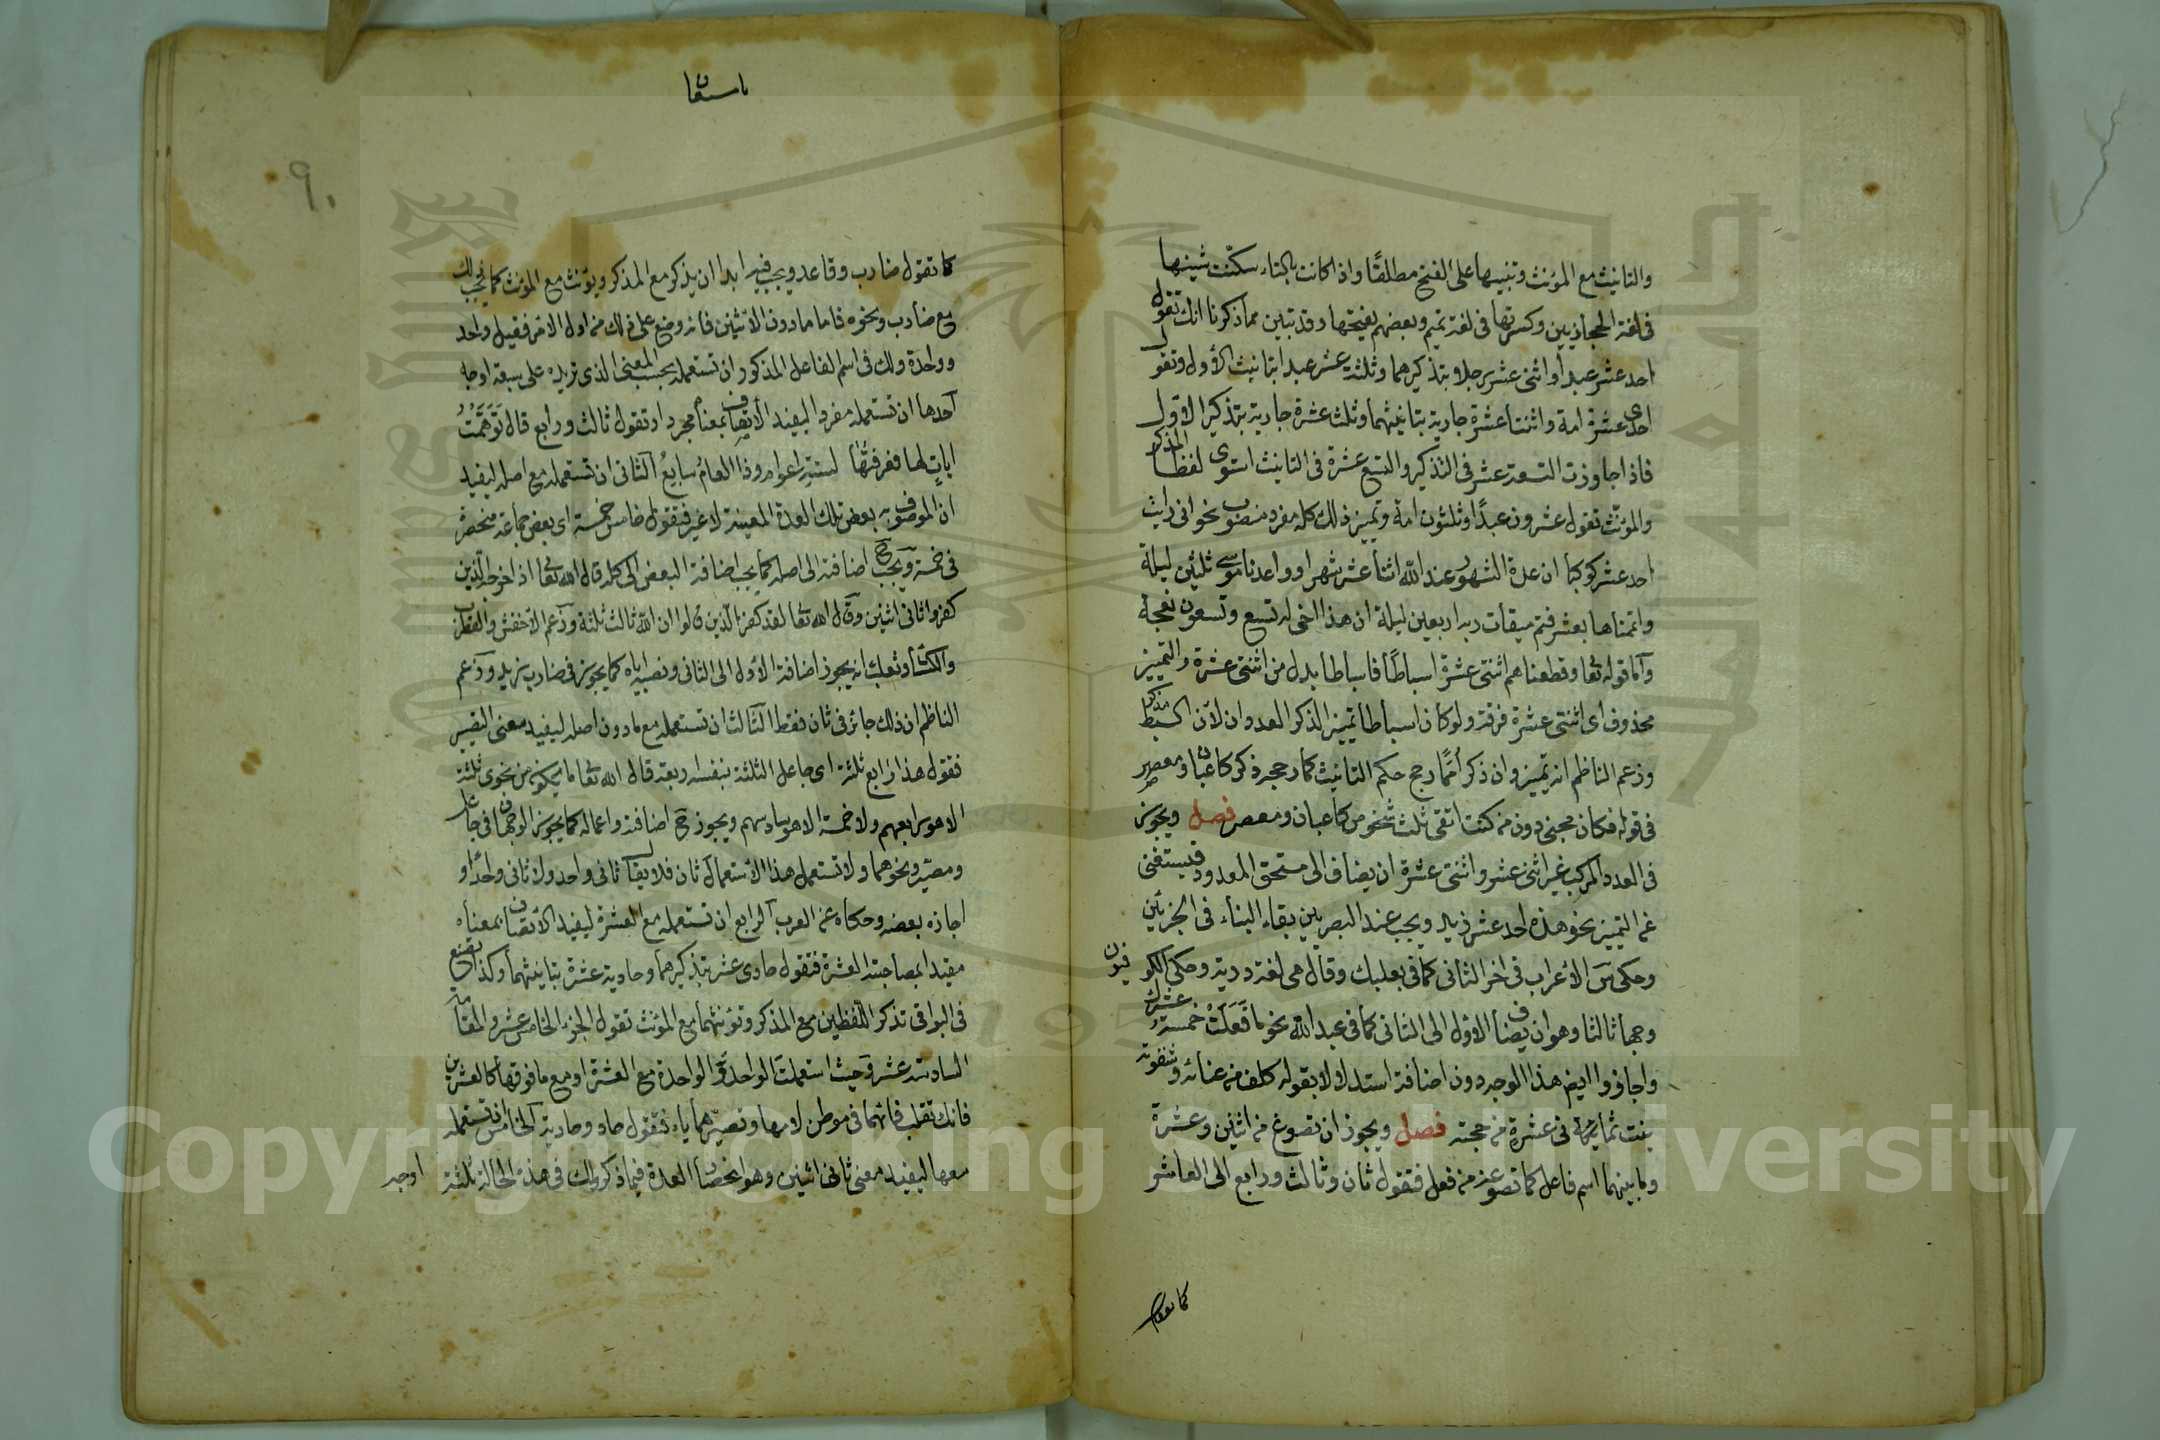 والتانيث مع المؤنث وتبنيهما على الفتح مطلقًا واذا كانت بالتاء سكّنت شينها
فى لغة الحجازيين وكسرتها فى لغة تميم وبعضهم يفتحها وقد تبين مما ذكرنا انك تقول
احد عشر عبدا واثنى عشر رجلا بتذكيرهما وثلثة عشر عبدا بتانيث الأول وتقول
احدى عشرة امة واثنتا عشرة جارية بتانيثهما وثلث عشرة جارية بتذكير الاول
فاذا جاوزت التسعة عشر فى التذكير والتسع عشرة فى التانيث استوى لفظا المذكر
والمؤنّث تقول عشرون عبدًا وثلثون امة وتمييز ذلك كله مفرد منصوب نحو انى رايت
احد عشر كوكبا ان عدة الشهور عند الله اثنا عشر شهرا وواعدنا موسى ثلثين ليلة
واتممناها بعشر فتم ميقات ربه اربعين ليلة ان هذا اخى له تسع وتسعون نعجة
وأما قوله تعا وقطعناهم اثنتى عشرة اسباطًا فاسباطا بدل من اثنتى عشرة والتمييز
محذوف اى اثنتى عشرة فرقة ولو كان اسباطا تمييزا لذكر العددان لانّ السبط مذكر
وزعم الناظم انه تمييز وان ذكر أممًا رجح حكم التانيث كما رجحه ذكر كاعبان ومعصر
فى قوله فكان مجنى دون من كنت اتقى ثلث شخوص كاعبان ومعصر فصل ويجوز
فى العدد المركب غير اثنى عشر واثنتى عشرة ان يضاف الى مستحق المعدود فيستغنى
عن التمييز نحو هذه احد عشر زيد ويجب عند البصريين بقاء البناء فى الجزئين
وحكى س الأعراب فى اخر الثانى كما فى بعلبك وقال هى لغة ردية وحكى الكوفيون
وجها ثالثا وهو ان يضاف الاول الى الثانى كما فى عبد الله نحو ما فَعَلَتْ خمسة عشرك
واجازوا ايضا هذا الوجه دون اضافة استدلالا بقوله كلف من عنائه وشقوته
بنت ثمانى عشرة من حجته فصل ويجوز ان تصوغ من اثنين وعشرة
وما بينهما اسم فاعل كما تصوغه من فعل فتقول ثان وثالث ورابع الى العاشر
كما تقول
ما استعا
٩٠
كما تقول ضارب وقاعد ويجب فيه ابدا ان يذكر مع المذكر ويؤنث مع المؤنث كما يجب ذلك
مع ضارب ونحوه فاما ما دون الاثنين فانه وضع على ذلك من اول الامر فقيل واحد
وواحدة ولك فى اسم الفاعل المذكور ان تستعمله بحسب المعنى الذى تريده على سبعة اوجه
احدها ان تستعمله مفردا ليفيد الأتصاف بمعناه مجردا وتقول ثالث ورابع قال تَوَهَّمْتُ
اياتٍ لها فعرفتُها لستة اعوام وذا العامُ سابعُ الثانى ان تستعمله مع اصله ليفيد
ان الموصوف به بعض تلك العدة المعينة لا غير فتقول خامس خمسة اى بعض جماعة منحصرة
فى خمسة ويجب ح اضافته الى اصله كما يجب اضافة البعض الى كله قال الله تعا اذ اخرجه الذين
كفروا ثانى اثنين وقال الله تعا لقد كفر الذين قالوا ان الله ثالث ثلثة وزعم الاخفش وقطرب
والكسائى وثعلب انه يجوز اضافة الأول الى الثانى ونصبه اياه كما يجوز فى ضارب زيد وزعم
الناظم ان ذلك جائز فى ثان فقط الثالث ان تستعمله مع ما دون اصله ليفيد معنى التصيير
فتقول هذا رابع ثلثة اى جاعل الثلثة بنفسه اربعة قال الله تعا ما يكون من نجوى ثلثة
الا هو رابعهم ولا خمسة الا هو سادسهم ويجوز ح اضافته واعماله كما يجوز الوجهان فى جاعل
ومصيّر ونحوهما ولا تستعمل هذا الأستعمال ثان فلا يقال ثانى واحد ولا ثانى واحدًا و
اجازه بعضهم وحكاه عن العرب الرابع ان تستعمله مع العشرة ليفيد الأتصاف بمعناه
مقيدا بمصاحبة العشرة فتقول حادى عشر بتذكيرهما وحادية عشرة بتانيثهما وكذا تصنع
فى البواقى تذكر اللفظين مع المذكر وتؤنثهما مع المؤنث تقول الجزء الخامس عشر والمقامة
السادسة عشر وحيث استعملت الواحد او الواحدة مع العشرة او مع ما فوقها كالعشرين
فانك تقلب فائهما فى موطن لامهما وتصيّرهما ياء فتقول حاد وحادية الخامس ان تستعمله
معها ليفيد معنى ثانى اثنين وهو انحصار العدة فيما ذكر ولك فى هذه الحالة ثلثة اوجه